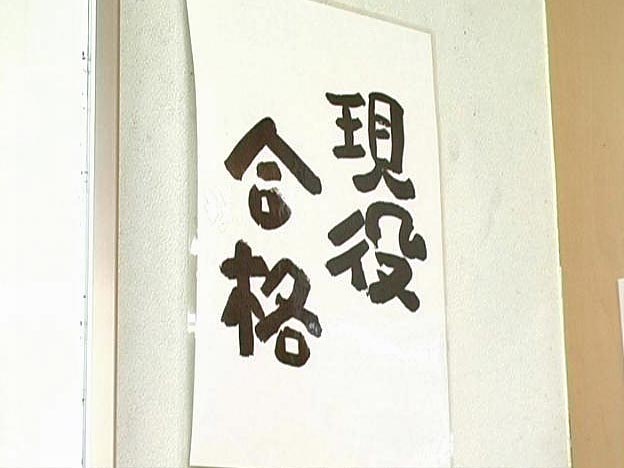 現役
合格